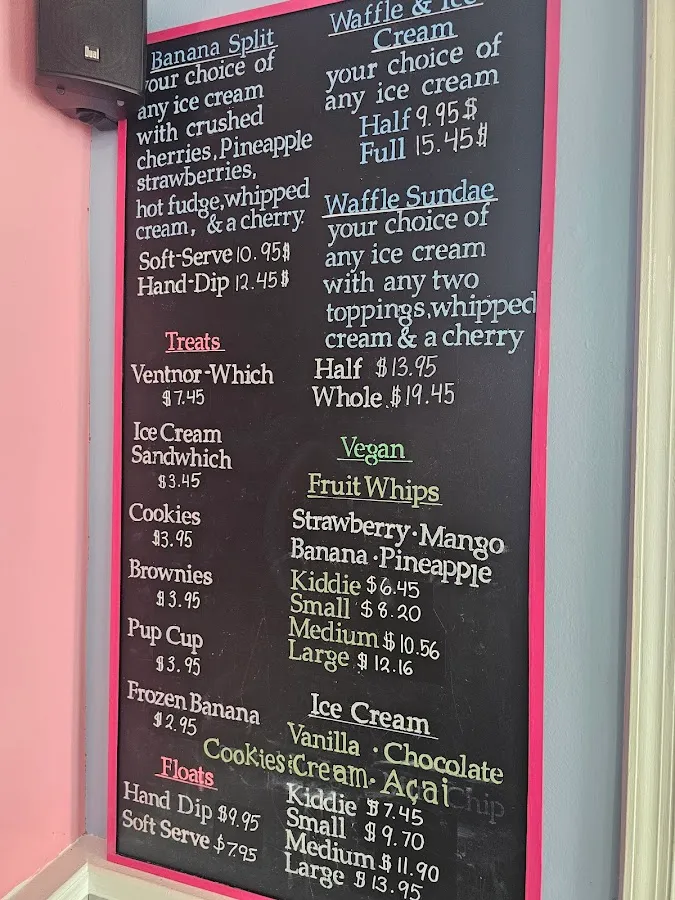 Dual
Banana Split
your choice of
any ice cream
with crushed
cherries, Pineapple
strawberries,
hot fudge, whipped
cream, & a cherry.
Soft-Serve 10.95$
Hand-Dip 12.45$
Treats
Ventnor-Which
$7.45
Ice Cream
Sandwhich
$3.45
Cookies
$3.95
Brownies
$3.95
Pup Cup
$3.95
Frozen Banana
$2.95
Floats
Hand Dip $9.95
Soft Serve $7.95
Waffle & Ice
Cream
your choice of
any ice cream
Half 9.95$
Full 15.45$
Waffle Sundae
your choice of
any ice cream
with any two
toppings, whipped
cream & a cherry
Half $13.95
Whole $19.45
Vegan
Fruit Whips
Strawberry · Mango
Banana · Pineapple
Kiddie $6.45
Small $8.20
Medium $10.56
Large $12.16
Ice Cream
Vanilla · Chocolate
Cookies & Cream · Açai
Chip
Kiddie $7.45
Small $9.70
Medium $11.90
Large $13.95